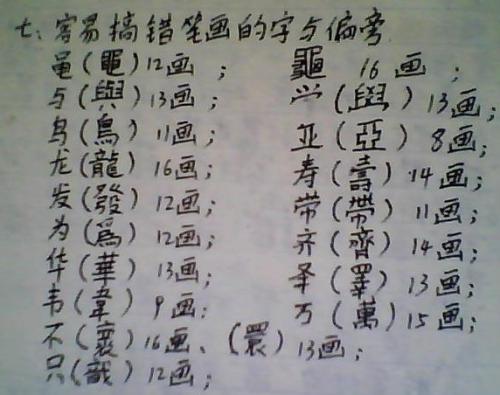 七、容易搞错笔画的字与偏旁
黾(黽)12画; 龜 16画;
与(與)13画; 13画;
鸟(鳥)11画; 亚(亞)8画;
龙(龍)16画; 寿(壽)14画;
发(發)12画; 带(帶)11画;
为(爲)12画; 齐(齊)14画;
华(華)13画; (睪)13画;
韦(韋)9画; 万(萬)15画;
不(褱)16画、(睘)13画;
只(戠)12画;